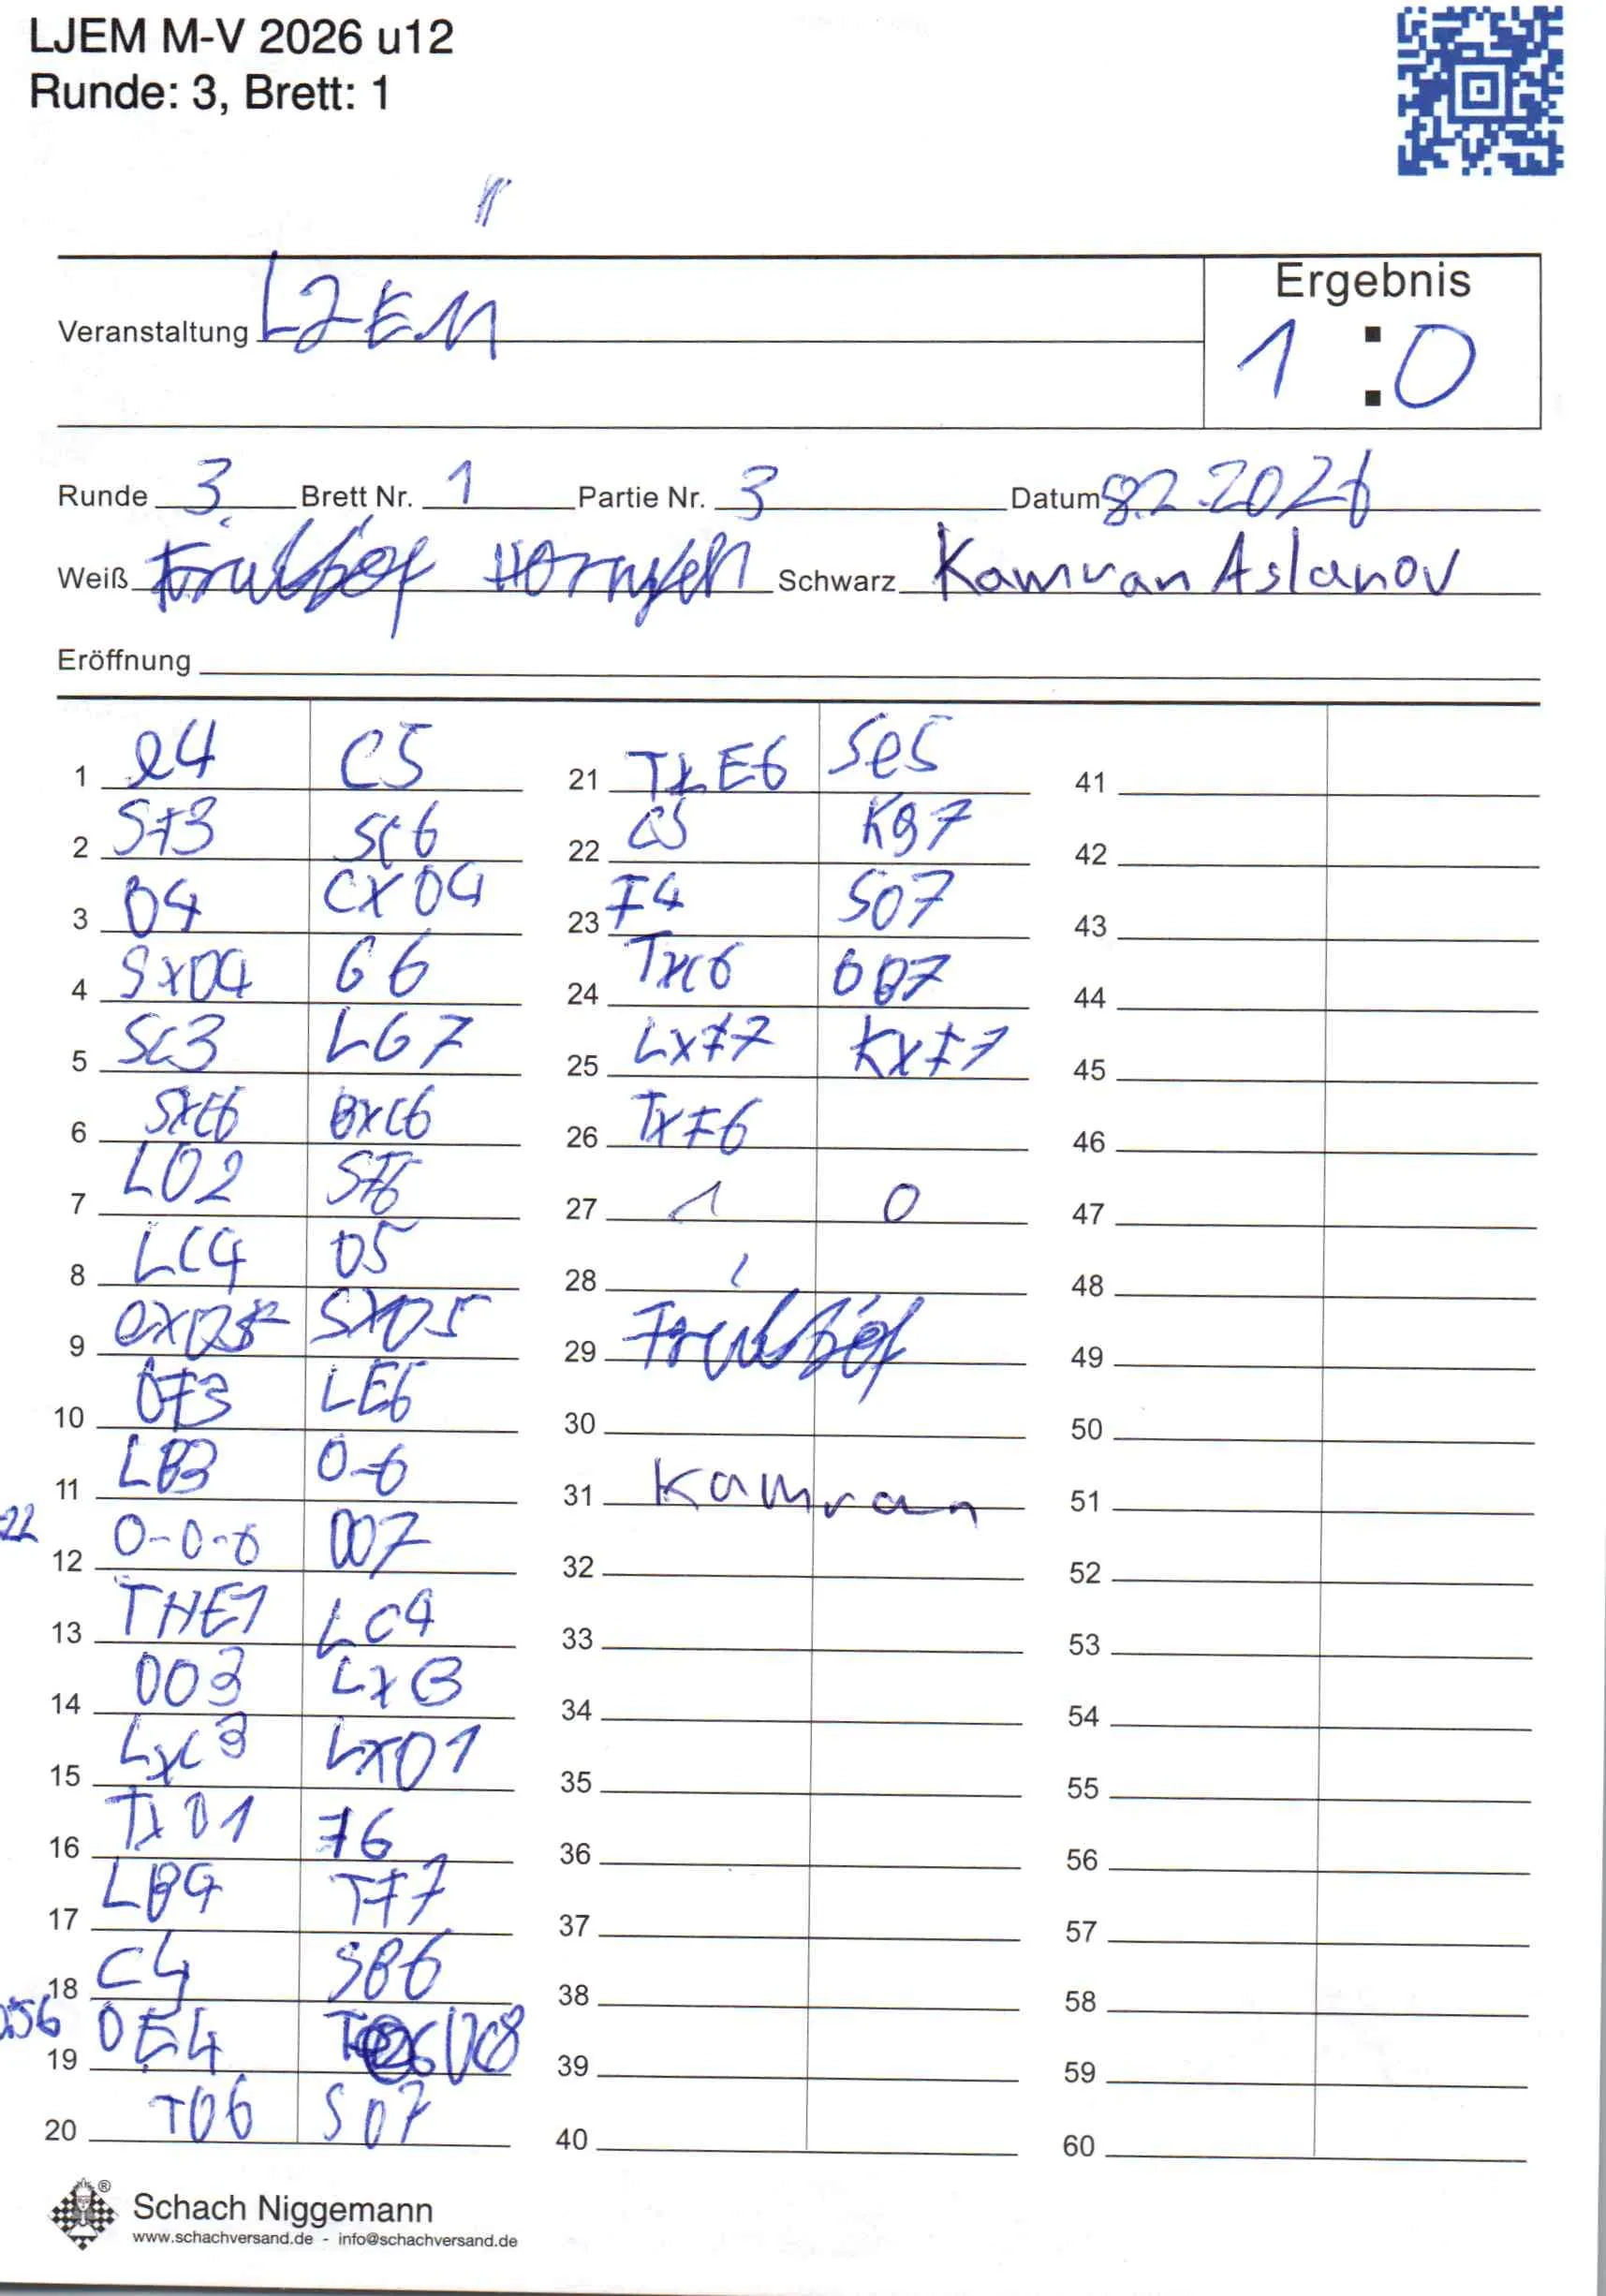 LJEM M-V 2026 u12
Runde: 3, Brett: 1
Ergebnis
Veranstaltung LJEM 1:0
Runde 3 Brett Nr. 1 Partie Nr. 3 Datum 8.2.2026
Weiß Schwarz Kamran Aslanov
Eröffnung
1 e4 C5
2 Sf3 Sc6
3 D4 CXD4
4 SXD4 G6
5 Sc3 LG7
6 SXC6 BXC6
7 LD2 SF6
8 LC4 D5
9 exD5 SXD5
10 DF3 LE6
11 LB3 0-0
22
12 0-0-0 DD7
13 THE1 LC4
14 DD3 LXB3
15 LXC3 LXD1
16 TXD1 F6
17 LB4 TF7
18 C4 SB6
56
19 DE4 DC8
20 TD6 SD7
21 TXE6 Se5
22 C5 KG7
23 F4 SD7
24 TXC6 DB7
25 LXF7 KXF7
26 TXF6
27 1 0
28
29
30
31 Kamran
32
33
34
35
36
37
38
39
40
41
42
43
44
45
46
47
48
49
50
51
52
53
54
55
56
57
58
59
60
Schach Niggemann
www.schachversand.de - info@schachversand.de